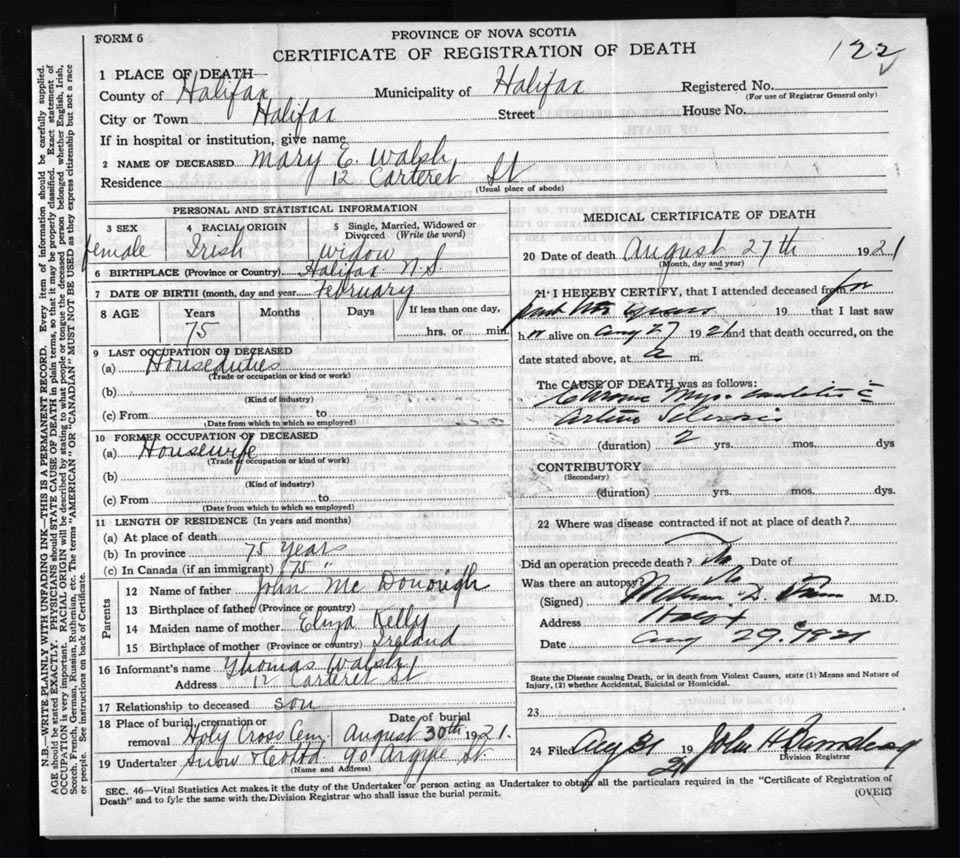 FORM 6
PROVINCE OF NOVA SCOTIA
CERTIFICATE OF REGISTRATION OF DEATH
122
1 PLACE OF DEATH
County of Halifax Municipality of Halifax Registered No.
(For use of Registrar General only)
City or Town Halifax Street House No.
If in hospital or institution, give name
2 NAME OF DECEASED Mary E. Walsh
Residence 12 Carteret St
(Usual place of abode)
PERSONAL AND STATISTICAL INFORMATION
3 SEX 4 RACIAL ORIGIN 5 Single, Married, Widowed or Divorced (Write the word)
female Irish widow
6 BIRTHPLACE (Province or Country) Halifax N.S.
7 DATE OF BIRTH (month, day and year) February
8 AGE Years Months Days If less than one day,
75 hrs. or min.
9 LAST OCCUPATION OF DECEASED
(a) Houseduties
(Trade or occupation or kind or work)
(b)
(Kind of industry)
(c) From to
(Date from which to which so employed)
10 FORMER OCCUPATION OF DECEASED
(a) Housewife
(Trade or occupation or kind or work)
(b)
(Kind of industry)
(c) From to
(Date from which to which so employed)
11 LENGTH OF RESIDENCE (In years and months)
(a) At place of death
(b) In province 75 years
(c) In Canada (if an immigrant) 75 "
Parents
12 Name of father John Mc Donough
13 Birthplace of father (Province or country)
14 Maiden name of mother Eliza Kelly
15 Birthplace of mother (Province or country) Ireland
16 Informant's name Thomas Walsh
Address 12 Carteret St
17 Relationship to deceased son
18 Place of burial, cremation or removal Holy Cross Cem. Date of burial August 30th 1921.
19 Undertaker Snow & Co Ltd 90 Argyle St.
(Name and Address)
MEDICAL CERTIFICATE OF DEATH
20 Date of death August 27th 1921
(Month, day and year)
21 I HEREBY CERTIFY, that I attended deceased from for
past years 19 that I last saw
h alive on Aug 27 1921 and that death occurred, on the
date stated above, at a m.
The CAUSE OF DEATH was as follows:
Chronic
(duration) 2 yrs. mos. dys
CONTRIBUTORY
(Secondary)
(duration) yrs. mos. dys.
22 Where was disease contracted if not at place of death?
Did an operation precede death? No Date of
Was there an autopsy? No
(Signed) William D. M.D.
Address Halifax
Date Aug 29. 1921
State the Disease causing Death, or in death from Violent Causes, state (1) Means and Nature of
Injury, (2) whether Accidental, Suicidal or Homicidal.
23
24 Filed Aug 31 19 21 John H
Division Registrar
SEC. 46—Vital Statistics Act makes it the duty of the Undertaker or person acting as Undertaker to obtain all the particulars required in the "Certificate of Registration of
Death" and to fyle the same with the Division Registrar who shall issue the burial permit.
(OVER)
N.B.—WRITE PLAINLY WITH UNFADING INK—THIS IS A PERMANENT RECORD. Every item of information should be carefully supplied.
AGE should be stated EXACTLY. PHYSICIANS should STATE CAUSE OF DEATH in plain terms, so that it may be properly classified. Exact statement of
OCCUPATION is very important. RACIAL ORIGIN will be described by stating to what people or tongue the deceased person belonged whether English, Irish,
Scotch, French, German, Russian, Ruthenian, etc. The terms "AMERICAN" OR "CANADIAN" MUST NOT BE USED as they express citizenship but not a race
or people. See instructions on back of Certificate.